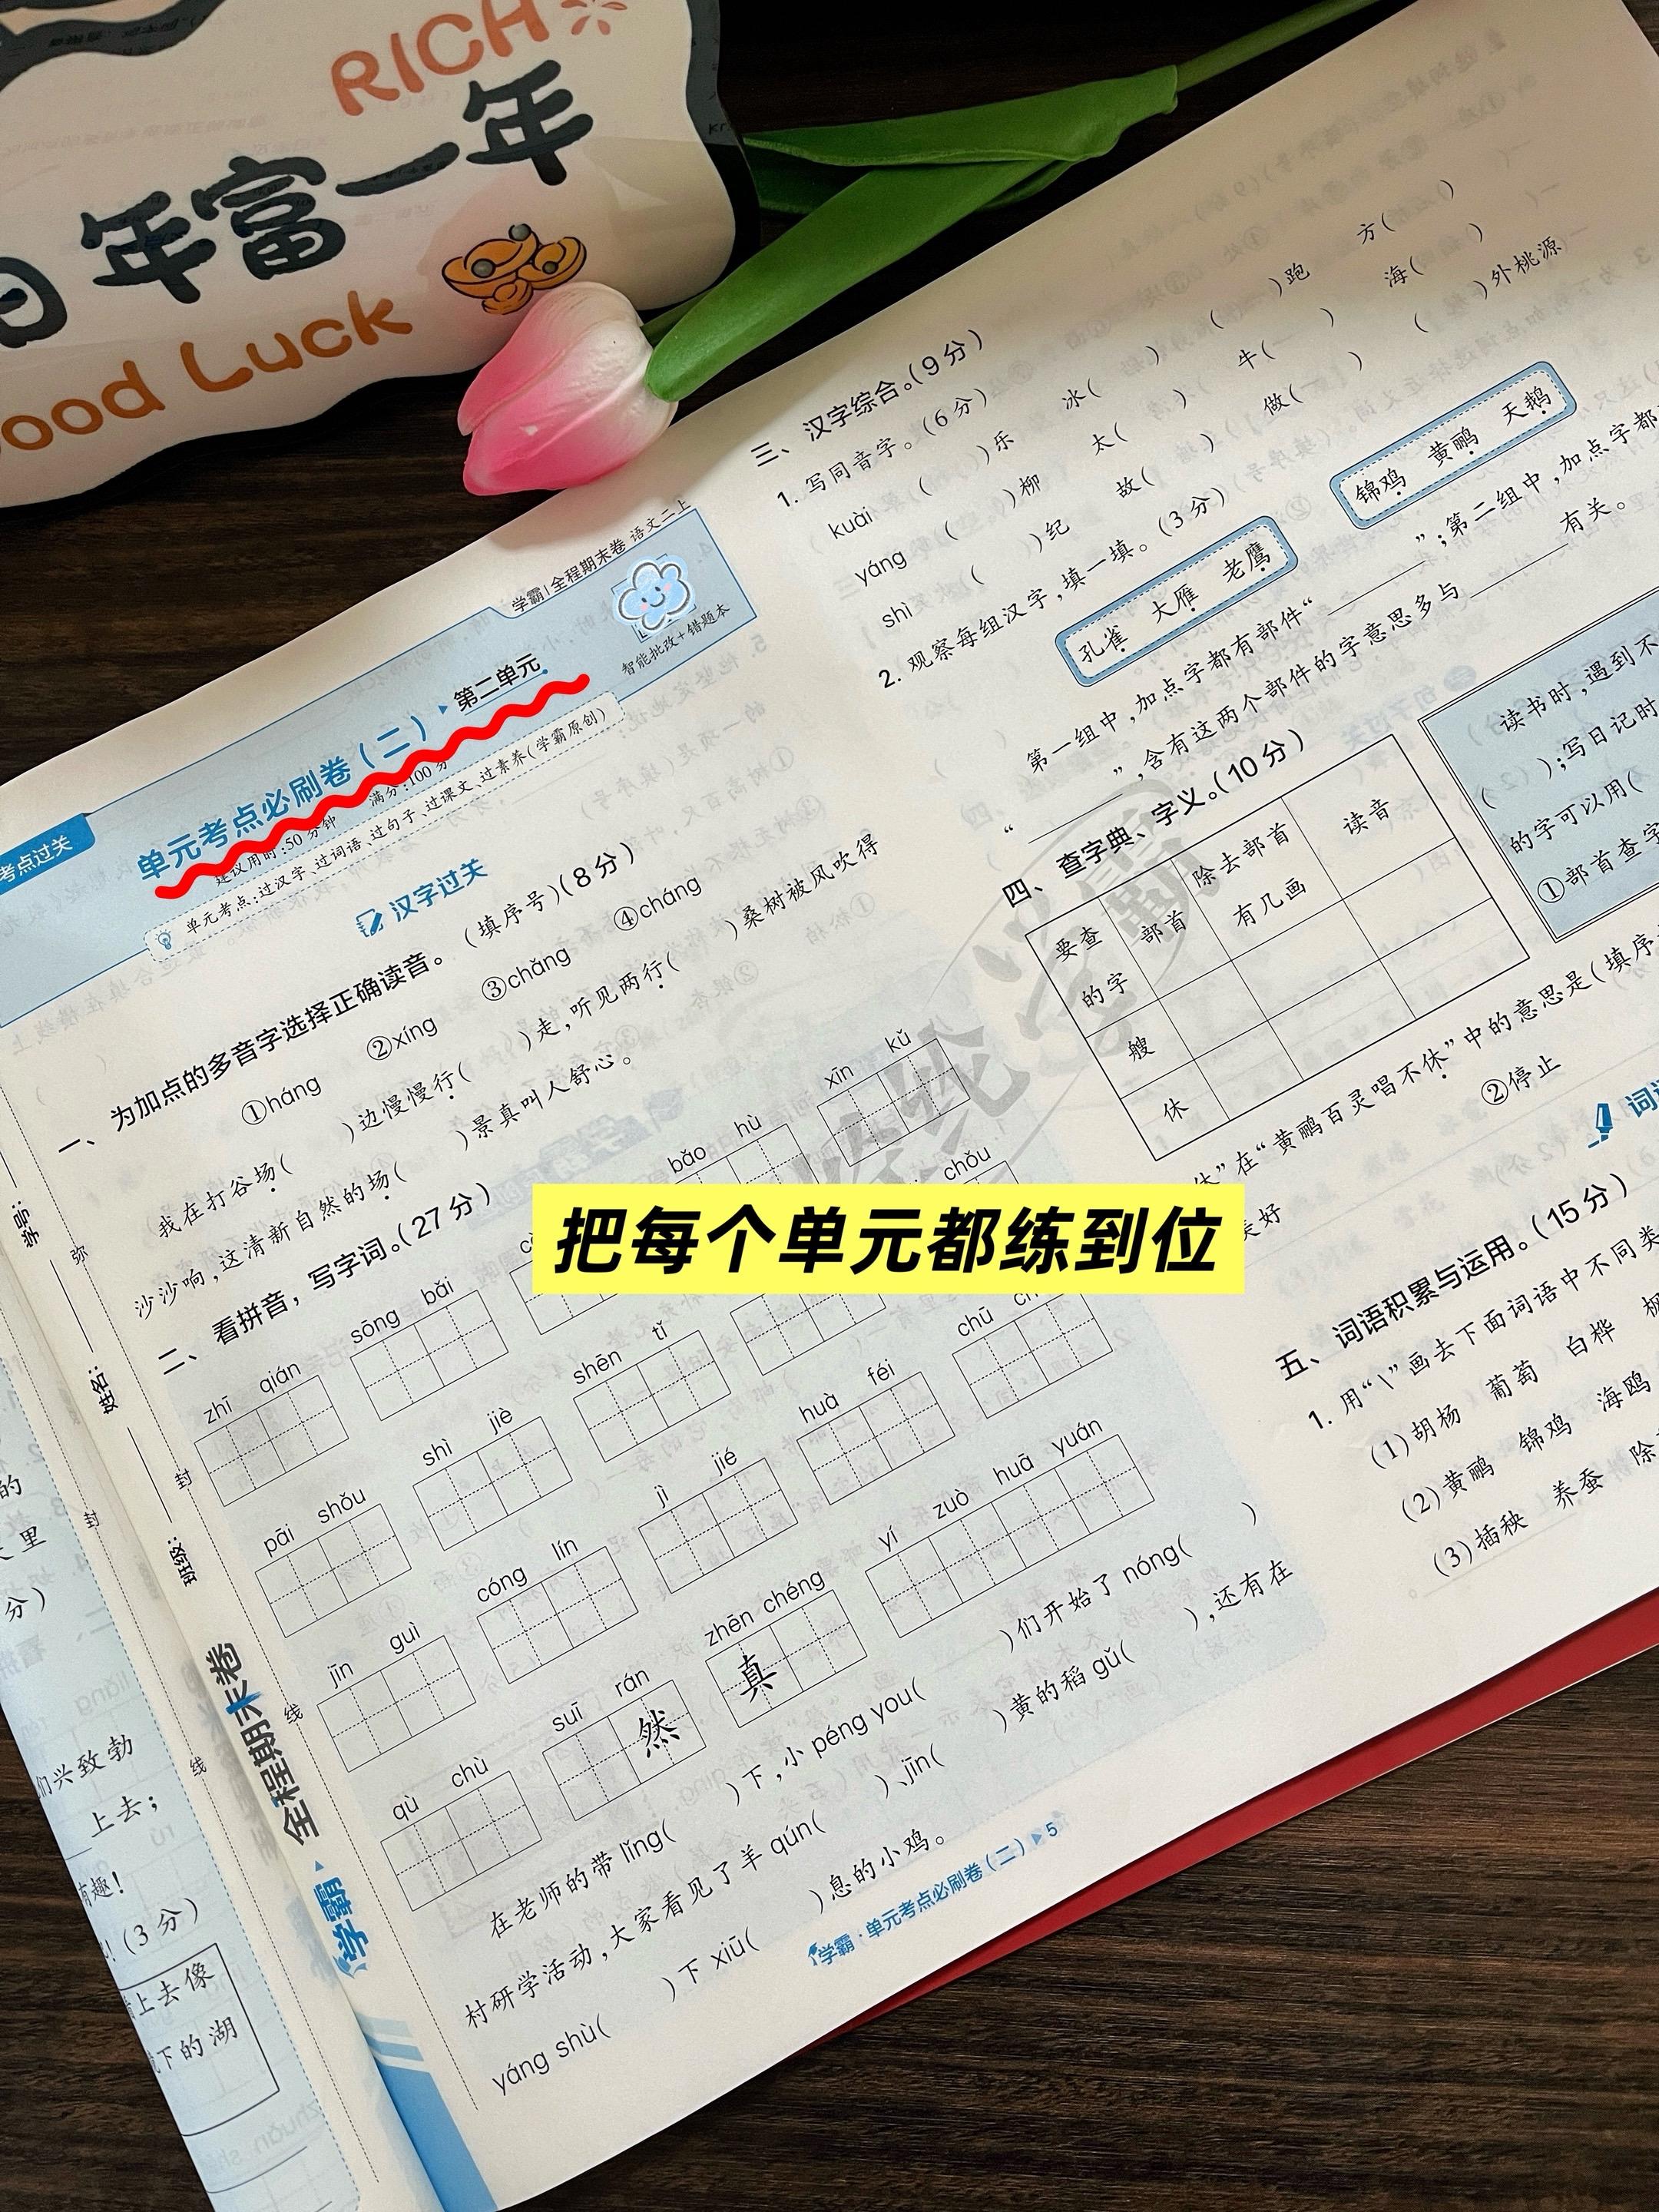 RICH
年富一年
Good Luck
学霸|全程期末卷 语文二上
智能批改+错题本
考点过关
单元考点必刷卷(二) ▶ 第二单元
建议用时:50分钟 满分:100分
单元考点:过汉字、过词语、过句子、过课文、过素养(学霸原创)
汉字过关
一、为加点的多音字选择正确读音。(填序号)(8分)
①háng ②xíng ③chǎng ④cháng
我在打谷场( )边慢慢行( )走,听见两行( )桑树被风吹得
沙沙响,这清新自然的场( )景真叫人舒心。
二、看拼音,写字词。(27分)
zhī qián
sōng bǎi
bǎo hù
xīn kǔ
pāi shǒu
shì jiè
shēn tǐ
chǒu
jīn guì
cóng lín
jì jié
huà féi
chū
qù chù
suī rán
然
zhēn chéng
真
yí zuò huā yuán
在老师的带 lǐng( )下,小 péng you( )们开始了 nóng( )
村研学活动,大家看见了羊 qún( )、jīn( )黄的稻 gǔ( ),还有在
yáng shù( )下 xiū( )息的小鸡。
学霸·单元考点必刷卷(二) ▶ 5
三、汉字综合。(9分)
1. 写同音字。(6分)
kuài ( )乐 冰( ) ( )跑 方( )
yáng ( )柳 太( ) 牛( ) 海( )
shì ( )纪 故( ) 做( ) ( )外桃源
2. 观察每组汉字,填一填。(3分)
孔雀 大雁 老鹰
锦鸡 黄鹂 天鹅
第一组中,加点字都有部件“ ”;第二组中,加点字都
“ ”,含有这两个部件的字意思多与 有关。
四、查字典、字义。(10分)
要查的字 部首 除去部首有几画 读音
艘
休
读书时,遇到不
( );写日记时
的字可以用(
①部首查字
休”在“黄鹂百灵唱不休”中的意思是(填序
美好 ②停止
词语
五、词语积累与运用。(15分)
1. 用“\”画去下面词语中不同类
(1)胡杨 葡萄 白桦
(2)黄鹂 锦鸡 海鸥
(3)插秧 养蚕 除
把每个单元都练到位
学号:
姓名:
班级:
弥
封
线
封
线
学霸▸全程期末卷
的
里
分)
们兴致勃
上去;
有趣!
!(3分)
上去像
下的湖